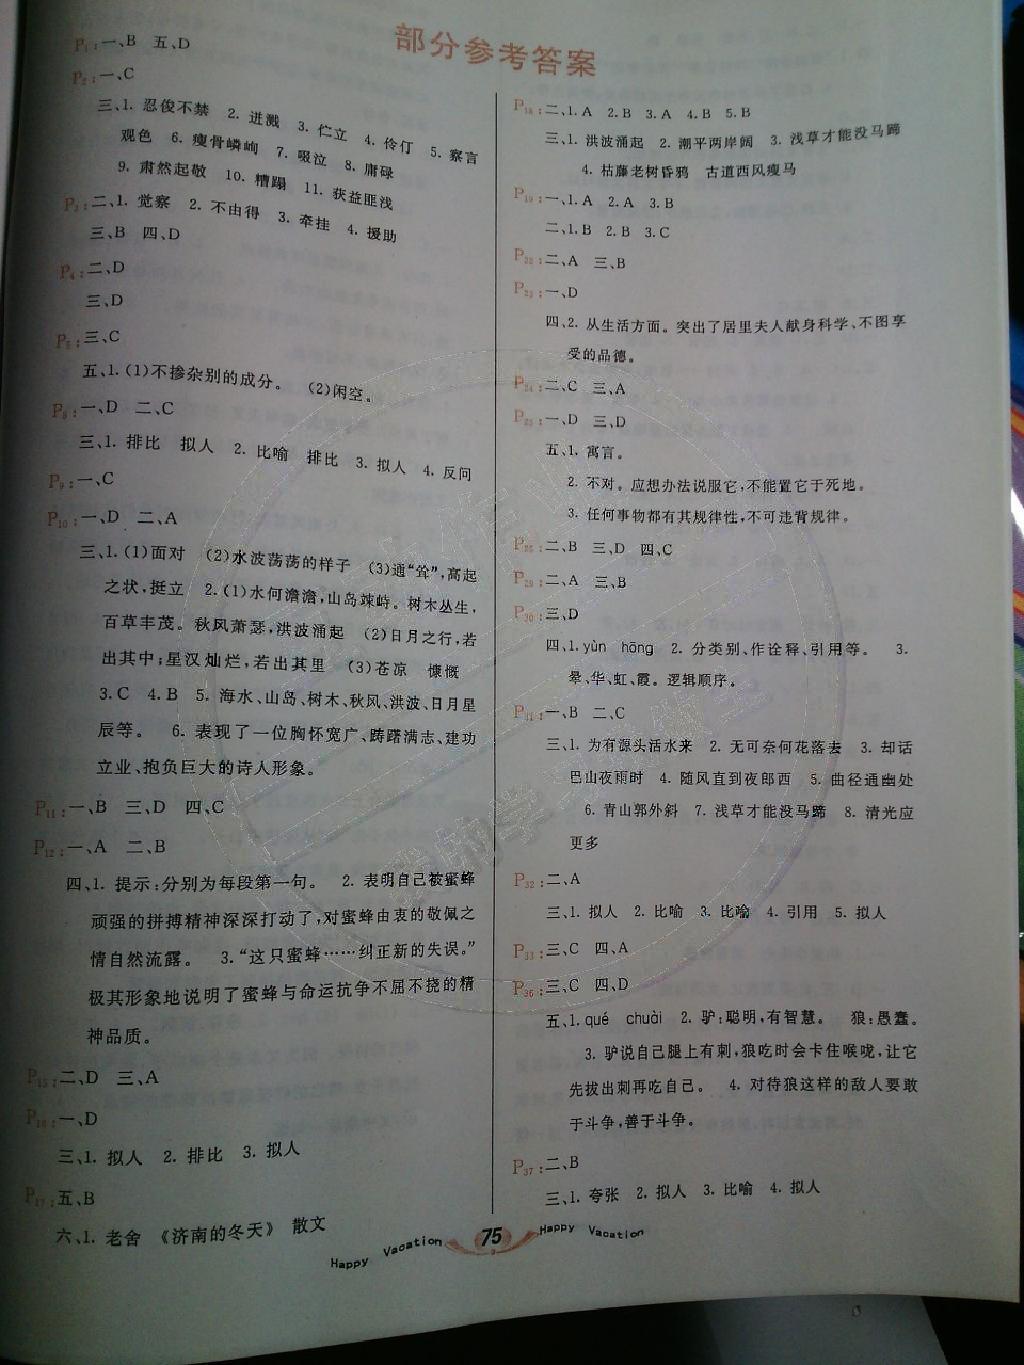 部分参考答案
P1:一、B 五、D
P2:一、C
三、1. 忍俊不禁 2. 迸溅 3. 伫立 4. 伶仃 5. 察言
观色 6. 瘦骨嶙峋 7. 啜泣 8. 庸碌
9. 肃然起敬 10. 糟蹋 11. 获益匪浅
P3:二、1. 觉察 2. 不由得 3. 牵挂 4. 援助
三、B 四、D
P4:二、D
三、D
P5:三、C
五、1. (1)不掺杂别的成分。 (2)闲空。
P8:一、D 二、C
三、1. 排比 拟人 2. 比喻 排比 3. 拟人 4. 反问
P9:一、C
P10:一、D 二、A
三、1. (1)面对 (2)水波荡荡的样子 (3)通“耸”,高起
之状,挺立 2. (1)水何澹澹,山岛竦峙。树木丛生,
百草丰茂。秋风萧瑟,洪波涌起 (2)日月之行,若
出其中;星汉灿烂,若出其里 (3)苍凉 慷慨
3. C 4. B 5. 海水、山岛、树木、秋风、洪波、日月星
辰等。 6. 表现了一位胸怀宽广、踌躇满志、建功
立业、抱负巨大的诗人形象。
P11:一、B 三、D 四、C
P12:一、A 二、B
四、1. 提示:分别为每段第一句。 2. 表明自己被蜜蜂
顽强的拼搏精神深深打动了,对蜜蜂由衷的敬佩之
情自然流露。 3. “这只蜜蜂……纠正新的失误。”
极其形象地说明了蜜蜂与命运抗争不屈不挠的精
神品质。
P15:二、D 三、A
P16:一、D
三、1. 拟人 2. 排比 3. 拟人
P17:五、B
六、1. 老舍 《济南的冬天》 散文
P18:二、1. A 2. B 3. A 4. B 5. B
三、1. 洪波涌起 2. 潮平两岸阔 3. 浅草才能没马蹄
4. 枯藤老树昏鸦 古道西风瘦马
P19:一、1. A 2. A 3. B
二、1. B 2. B 3. C
二、A 三、B
一、D
四、2. 从生活方面。突出了居里夫人献身科学、不图享
受的品德。
P24:二、C 三、A
P25:一、D 三、D
五、1. 寓言。
2. 不对。应想办法说服它,不能置它于死地。
3. 任何事物都有其规律性,不可违背规律。
二、B 三、D 四、C
P29:二、A 三、B
P30:三、D
四、1. yùn hōng 2. 分类别、作诠释、引用等。 3.
晕、华、虹、霞。逻辑顺序。
P31:一、B 二、C
三、1. 为有源头活水来 2. 无可奈何花落去 3. 却话
巴山夜雨时 4. 随风直到夜郎西 5. 曲径通幽处
6. 青山郭外斜 7. 浅草才能没马蹄 8. 清光应
更多
P32:二、A
三、1. 拟人 2. 比喻 3. 比喻 4. 引用 5. 拟人
P33:三、C 四、A
P36:三、C 四、D
五、1. qué chuài 2. 驴:聪明,有智慧。 狼:愚蠢。
3. 驴说自己腿上有刺,狼吃时会卡住喉咙,让它
先拔出刺再吃自己。 4. 对待狼这样的敌人要敢
于斗争,善于斗争。
P37:二、B
三、1. 夸张 2. 拟人 3. 比喻 4. 拟人
Happy Vacation 75 Happy Vacation